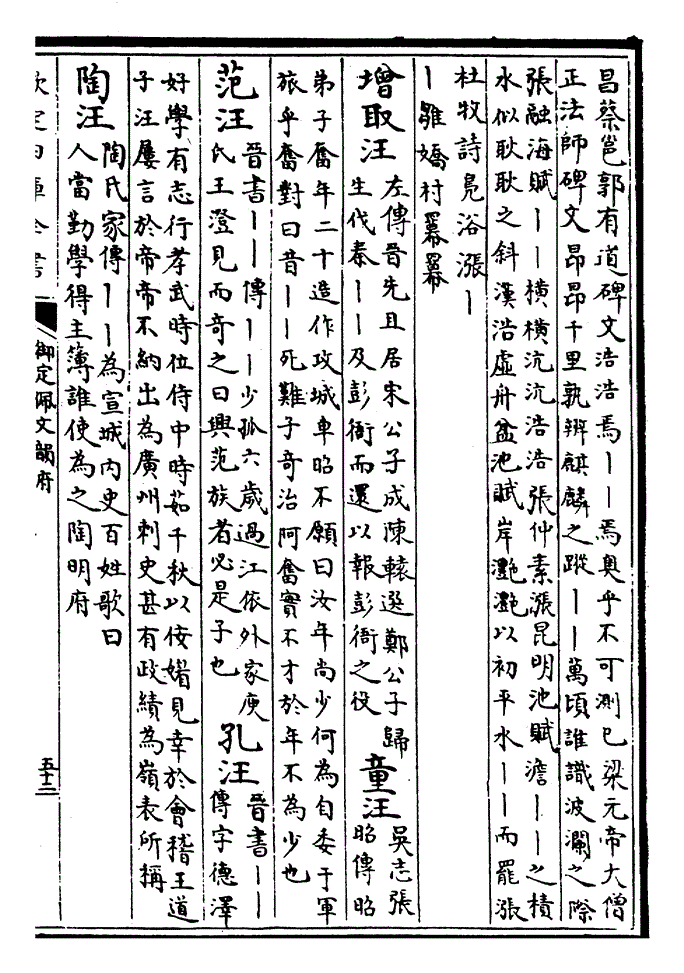 昌蔡邕郭有道碑文浩浩焉丨丨焉奥乎不可測已梁元帝大僧
正法師碑文昂昂千里孰辨麒麟之蹤丨丨萬頃誰識波瀾之際
張融海賦丨丨橫橫沆沆浩浩張仲素漲昆明池賦澹丨丨之積
水似耿耿之斜漢浩虚舟盆池賦岸灔灔以初平水丨丨而罷漲
杜牧詩鳧浴漲丨
丨雛嬌村冪冪
增取汪
左傳晉先且居宋公子成陳轅選鄭公子歸
生伐秦丨丨及彭衙而還以報彭衙之役
童汪
吳志張
昭傳昭
弟子奮年二十造作攻城車昭不願曰汝年尚少何為自委于軍
旅乎奮對曰昔丨丨死難子奇治阿奮實不才於年不為少也
范汪
晉書丨丨傳丨丨少孤六歲過江依外家庾
氏王澄見而奇之曰興范族者必是子也
孔汪
晉書丨丨
傳字德澤
好學有志行孝武時位侍中時茹千秋以佞媚見幸於會稽王道
子汪屢言於帝帝不納出為廣州刺史甚有政績為嶺表所稱
陶汪
陶氏家傳丨丨為宣城内史百姓歌曰
人當勤學得主簿誰使為之陶明府
欽定四庫全書
御定佩文韻府
五十二